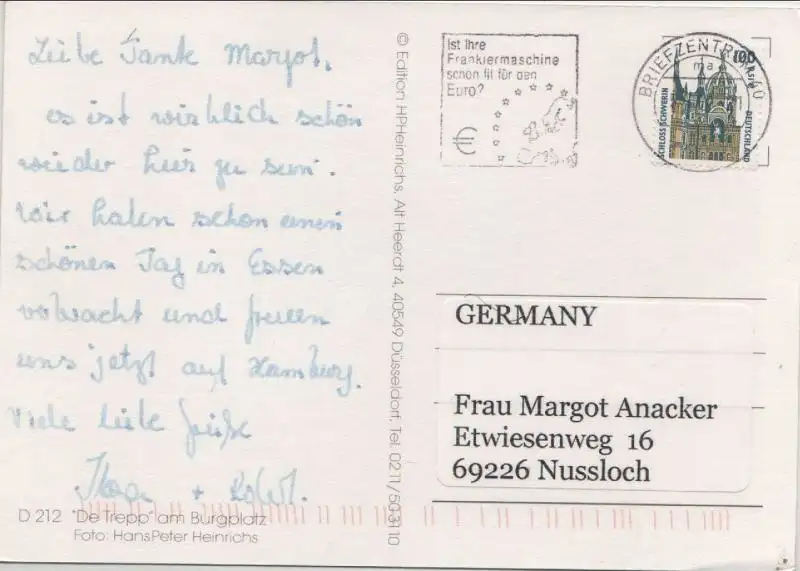 Liebe Tante Margot,
es ist wirklich schön
wieder hier zu sein.
Wir haben schon einen
schönen Tag in Essen
verbracht und freuen
uns jetzt auf Hamburg.
Viele liebe Grüße
+
D 212 "De Trepp" am Burgplatz
Foto: HansPeter Heinrichs
© Edition HPHeinrichs, Alt Heerdt 4, 40549 Düsseldorf, Tel. 0211/50 31 10
Ist Ihre
Frankiermaschine
schon fit für den
Euro?
€
BRIEFZENTRUM 40
ma
100
SCHLOSS SCHWERIN
DEUTSCHLAND
GERMANY
Frau Margot Anacker
Etwiesenweg 16
69226 Nussloch